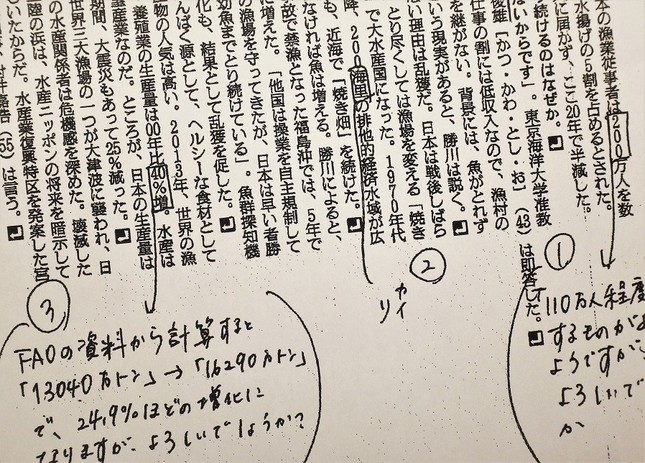 本の漁業従事者は200万人を数
水揚げの5割を占めるとされた。
に届かず、ここ20年で半減した。
続けるのはなぜか。
ないからです」。東京海洋大学准教
俊雄「かつ・かわ・とし・お」(43)は即答した。
仕事の割には低収入なので、漁村の
を継がない。背景には、魚がとれず
いう現実があると、勝川は説く。
い理由は乱獲だ。日本は戦後しばら
とり尽くしては漁場を変える「焼き
で大水産国になった。1970年代
降、200海里の排他的経済水域が広
も、近海で「焼き畑」を続けた。
なければ魚は増える。勝川によると、
故で禁漁となった福島沖では、5年で
に増えた。「他国は操業を自主規制して
の漁場を守ってきたが、日本は早い者勝
幼魚までとり続けている」。魚群探知機
化も、結果として乱獲を促した。
んぱく源として、ヘルシーな食材として
物の人気は高い。2013年、世界の漁
養殖業の生産量は00年比40%増。水産は
産業なのだ。ところが、日本の生産量は
期間、大震災もあって25%減った。
世界三大漁場の一つが大津波に襲われ、日
の水産関係者は危機感を深めた。壊滅した
陸の浜は、水産ニッポンの将来を暗示して
いたからだ。水産業復興特区を発案した宮
(55)は言う。
①
110万人程度
するものが
ようですが、
よろしいで
か
②
カイ
リ
③
FAOの資料から計算すると
「13040万トン」→「16290万トン」
で、24.9%ほどの増化に
なりますが、よろしいでしょうか?